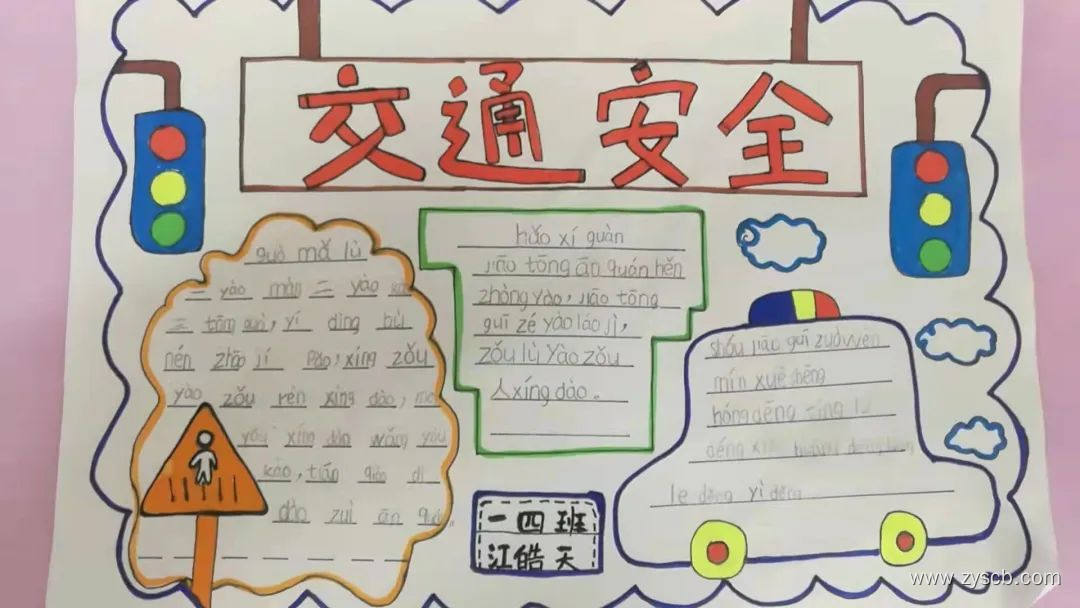 交通安全
guò mǎ lù
一 yào màn 二 yào
三 tōng guò, yí dìng bù
nén zháo jí xíng zǒu
yào zǒu rén xíng dào,
xíng dào wǎng yòu
kào, tiān qiáo dì
dào zuì ān quán。
hǎo xí guàn
jiāo tōng ān quán hěn
zhòng yào, jiāo tōng
guī zé yào láo jì,
zǒu lù yào zǒu
人xíng dào。
shǒu jiāo guī zuò wén
mín xuē shēng
hóng dēng tíng lǜ
dēng xíng huáng dēng
le děng yì děng
一四班
江皓天
www.zyscb.com